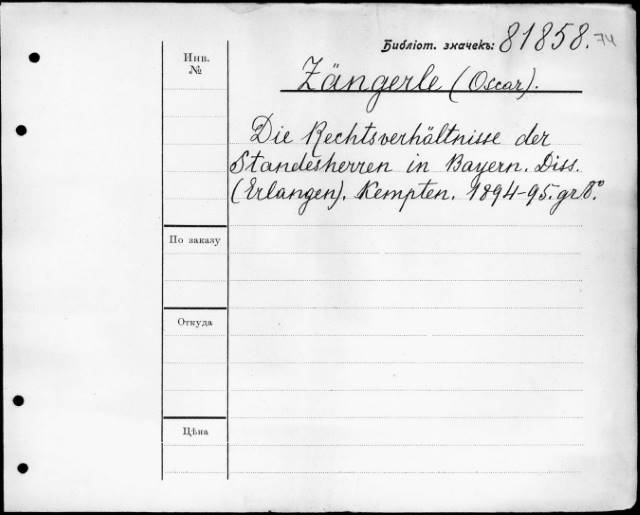 Библіот. значекъ: 81858. 74
Инв.
№
Zängerle (Oscar).
Die Rechtsverhältnisse der
Standesherren in Bayern. Diss.
(Erlangen). Kempten. 1894-95. gr 8.°
По заказу
Откуда
Цѣна